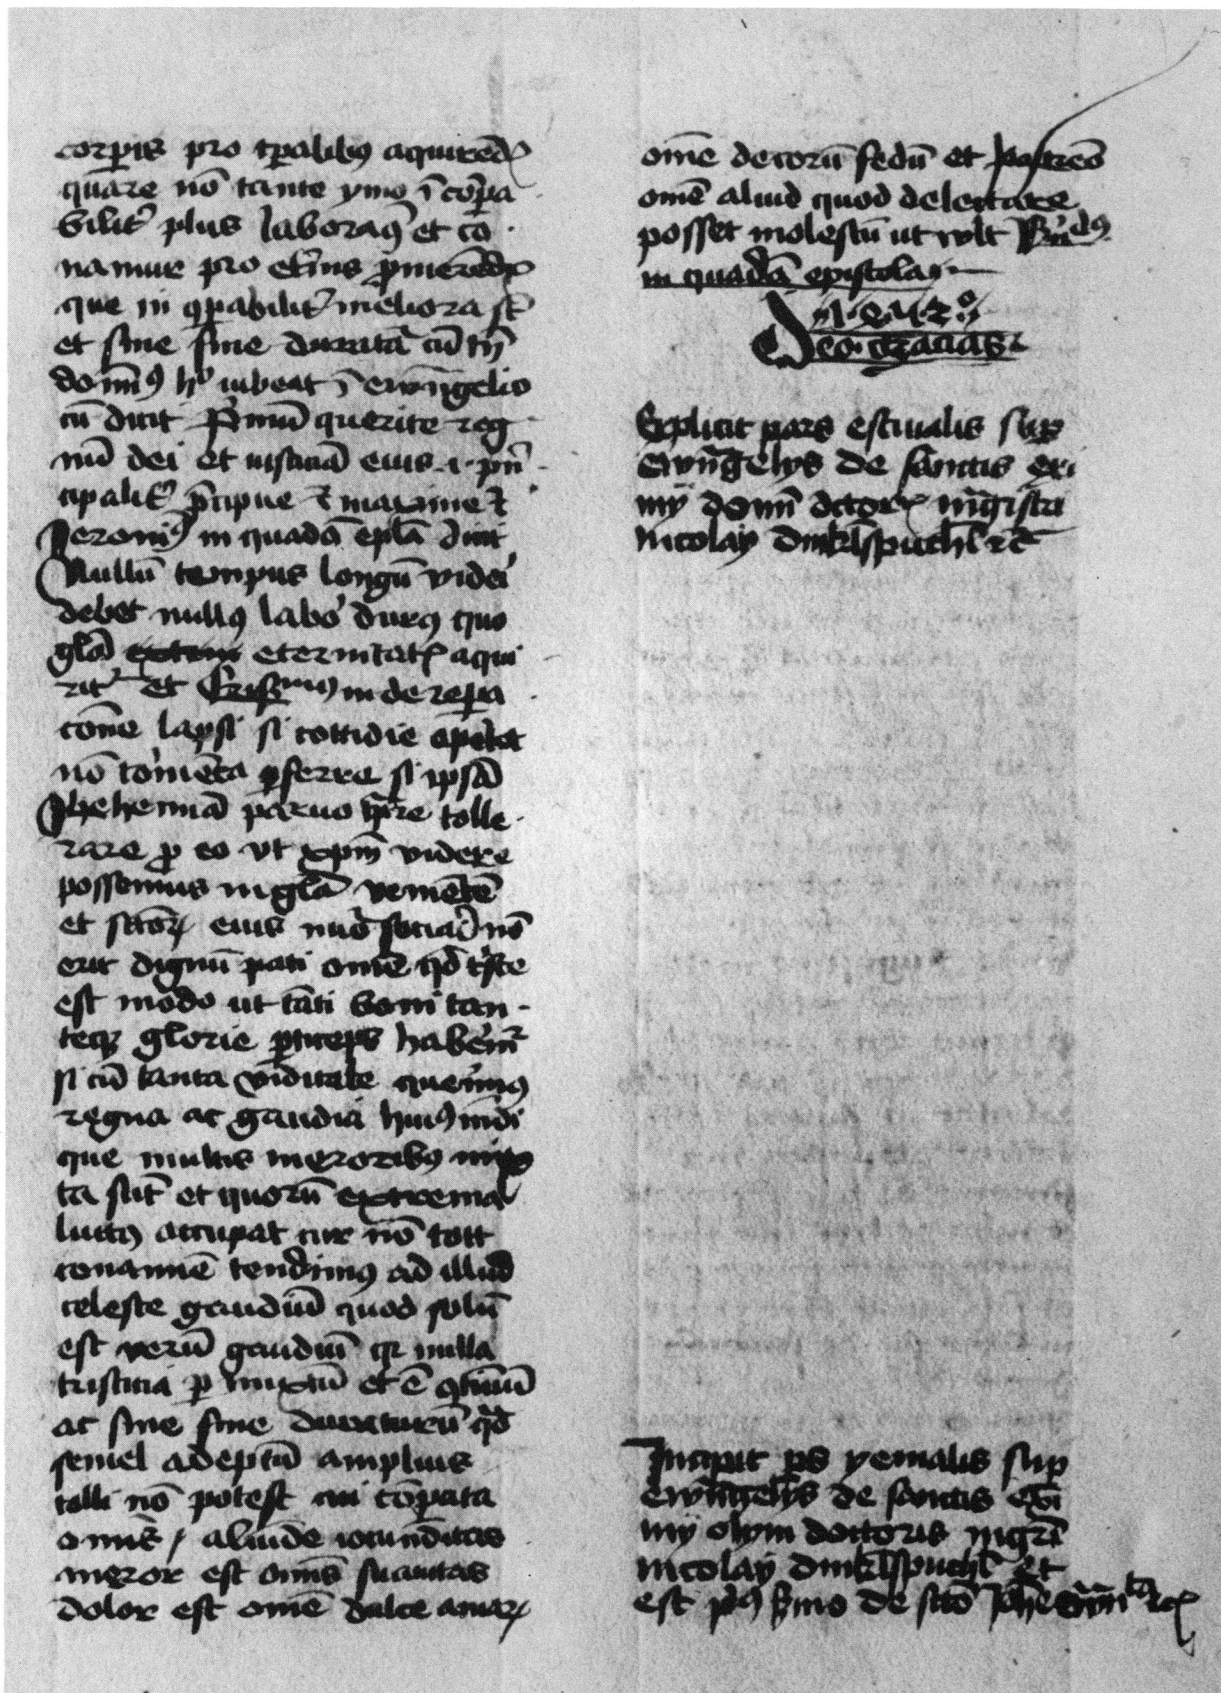 corꝑis pro tꝑalibꝰ aquirēdꝭ
quare nō tante ymo ī cōpa
bilit᷑ plus laboramꝰ et co
namur pro et᷑nis ꝓmerēdꝭ
que in ꝯpabilit᷑ meliora st̄
et sine fine durātā cū tn̄
domīꝰ hͦ iubeat ī ewāngelio
cū dicit Pͥmū querite reg
nū dei et iusticiā eius ·i· pͥn
cipalit᷑ p̄cipue ⁊ maxime ⁊c̄
Jeronīꝰ in quadā epl̄a dicit
Nullū tempus longū videͥ
debet nullꝰ laboʳ durꝰ quo
gl̄a eternitatꝭ aqui
rit᷑ et Crisꝰ in de repa
cōne lapsi si cottidie oportet
nō tormēta ꝑferre si ipsā
Jhehennā paruo tꝑre tolle
rare ꝓ eo vt xpm̄ videre
possemus in gl̄a veniētē
et sctōꝝ eius nūo sociari nō
erit dignū pati omē qd̄ tͥste
est modo ut tāti boni tan
teqꝫ glorie ꝑticeps habem᷑
si cū tanta viditate querimꝰ
regna ac gaudia huiꝰ mūdi
que multis meroribꝰ mix
ta sūt et quorū extrema
luctꝰ occupat cur nō tott
conamīe tendimꝰ ad illud
celeste gaudiū quod solū
est verū gaudiū qꝛ nulla
tristicia ꝑ mixtū et ē ꝯtinuū
ac sine fine duraturū qd̄
semel adeptū amplius
tolli nō potest cui cōpata
omīs aliunde iocunditas
meror est omīs suauitas
dolor est omē dulce amaꝝ
omē decorū fedū et postremo
omē aliud quod delectare
posset molestū ut vult Bn̄dꝰ
in quadā epistola
Deo gracias
Explicit pars estiualis suꝑ
Ewāngelys de sanctis exi
mÿ domī doctorꝭ magistri
nicolay dinkl̄spuchl̄ ⁊c̄
Incipit ps yemalis suꝑ
ewāngelys de sanctis exi
mÿ olym doctoris mgrī
nicolaÿ dinkl̄spuchl̄ et
est pͥmꝰ ẜmo de sctō Johe